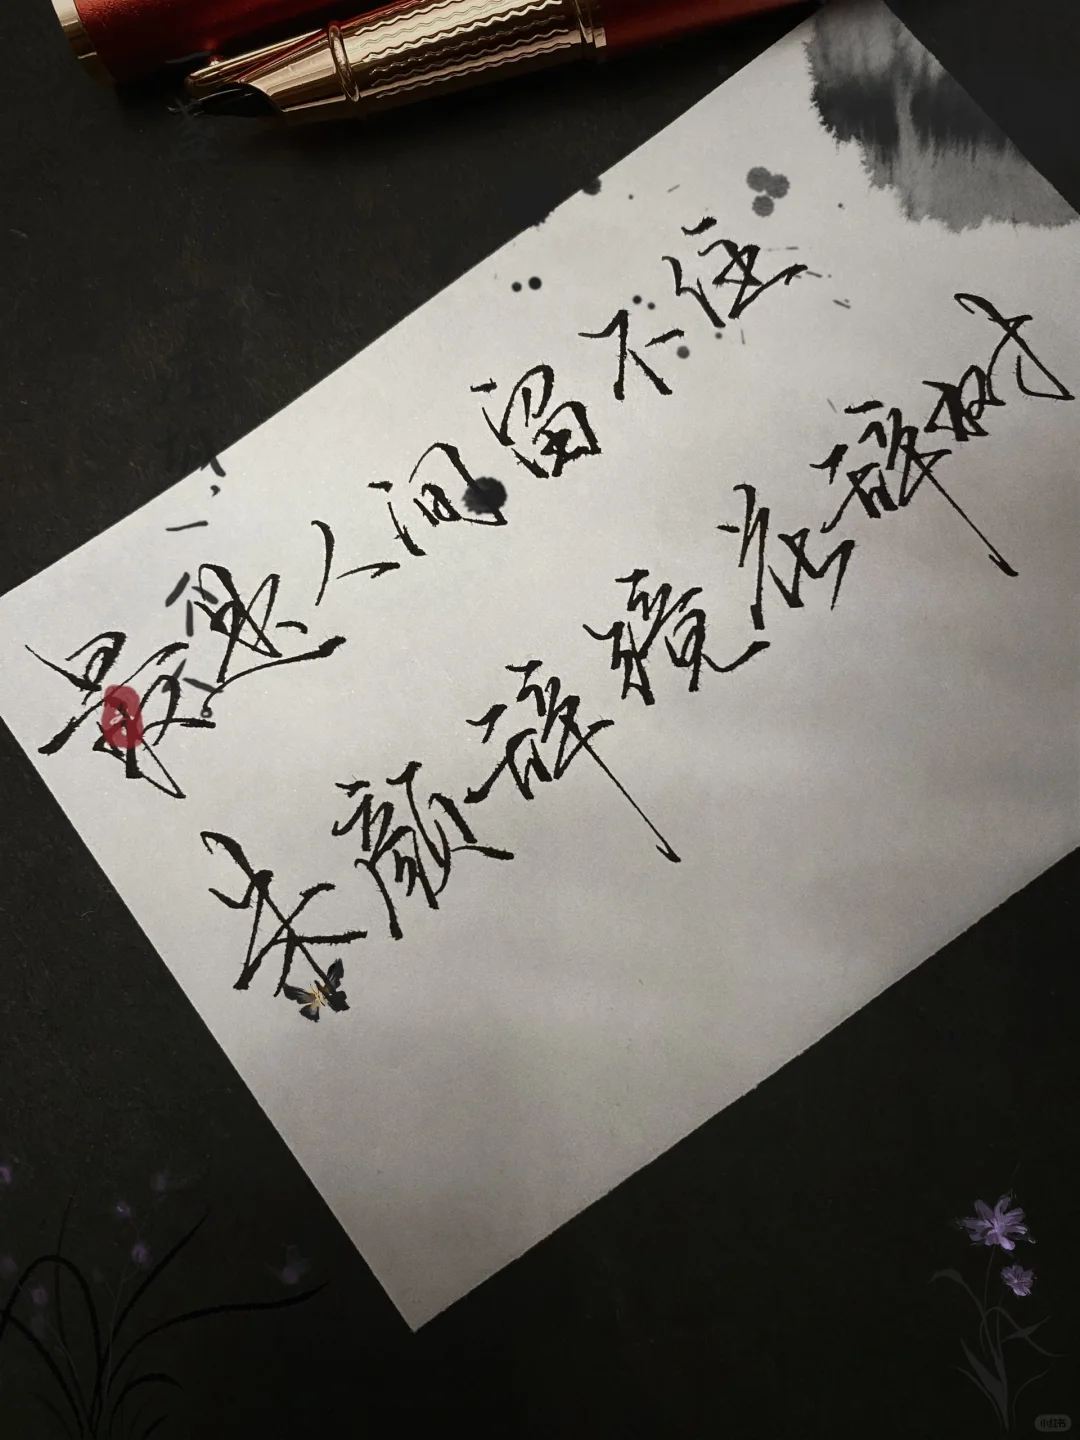 最是人间留不住
朱颜辞镜花辞树
小红书